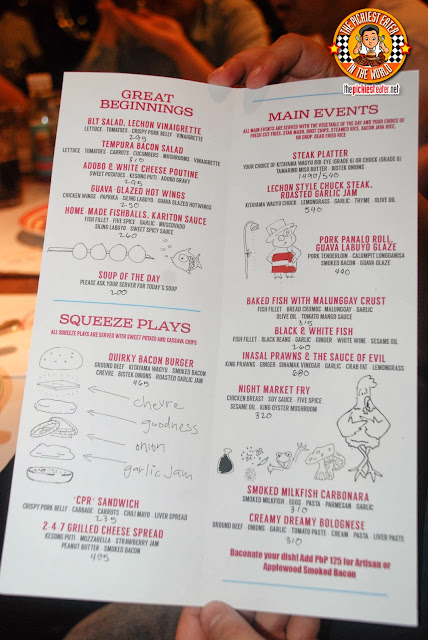 THE PICKIEST EATER
IN THE WORLD
thepickiesteater.net
GREAT
BEGINNINGS
BLT SALAD, LECHON VINAIGRETTE
LETTUCE · TOMATOES · CRISPY PORK BELLY · VINAIGRETTE
295
TEMPURA BACON SALAD
LETTUCE · TOMATOES · CARROTS · CUCUMBERS · MUSHROOMS · VINAIGRETTE
310
ADOBO & WHITE CHEESE POUTINE
SWEET POTATOES · KESONG PUTI · ADOBO GRAVY
295
GUAVA-GLAZED HOT WINGS
CHICKEN WINGS · PAPRIKA · SILING LABUYO · GUAVA GLAZED HOTWINGS
250
HOME-MADE FISHBALLS, KARITON SAUCE
FISH FILLET · FIVE SPICE · GARLIC · MUSCOVADO
SILING LABUYO · SWEET SPICY SAUCE
260
SOUP OF THE DAY
PLEASE ASK YOUR SERVER FOR TODAY'S SOUP
200
SQUEEZE PLAYS
ALL SQUEEZE PLAYS ARE SERVED WITH SWEET POTATO AND CASSAVA CHIPS
QUIRKY BACON BURGER
GROUND BEEF · KITAYAMA WAGYU · SMOKED BACON
CHEVRE · BISTEK ONIONS · ROASTED GARLIC JAM
465
chevre
goodness
onion
garlic jam
"CPR" SANDWICH
CRISPY PORK BELLY · CABBAGE · CARROTS · CHILI MAYO · LIVER SPREAD
235
2 4 7 GRILLED CHEESE SPREAD
KESONG PUTI · MOZZARELLA · STRAWBERRY JAM
PEANUT BUTTER · SMOKED BACON
405
MAIN EVENTS
ALL MAIN EVENTS ARE SERVED WITH THE VEGETABLE OF THE DAY AND YOUR CHOICE OF
FRESH CUT FRIES, STAR MASH, ROOT CHIPS, STEAMED RICE, BACON JAVA RICE,
OR DROP DEAD FRIED RICE
STEAK PLATTER
YOUR CHOICE OF KITAYAMA WAGYU RIB EYE (GRADE 6) OR CHUCK (GRADE 6)
TAMARIND MISO BUTTER · BISTEK ONIONS
1490/540
LECHON STYLE CHUCK STEAK,
ROASTED GARLIC JAM
KITAYAMA WAGYU CHUCK · LEMONGRASS · GARLIC · THYME · OLIVE OIL
540
PORK PANALO ROLL,
GUAVA LABUYO GLAZE
PORK TENDERLOIN · CALUMPIT LONGGANISA
SMOKED BACON · GUAVA GLAZE
440
BAKED FISH WITH MALUNGGAY CRUST
FISH FILLET · BREAD CRUMBS · MALUNGGAY · GARLIC
OLIVE OIL · TOMATO MANGO SAUCE
315
BLACK & WHITE FISH
FISH FILLET · BLACK BEANS · GARLIC · GINGER · WHITE WINE · SESAME OIL
260
INASAL PRAWNS & THE SAUCE OF EVIL
KING PRAWNS · GINGER · SINAMAK VINEGAR · GARLIC · CRAB FAT · LEMONGRASS
680
NIGHT MARKET FRY
CHICKEN BREAST · SOY SAUCE · FIVE SPICE
SESAME OIL · KING OYSTER MUSHROOM
320
SMOKED MILKFISH CARBONARA
SMOKED MILKFISH · EGGS · PASTA · PARMESAN · GARLIC
310
CREAMY DREAMY BOLOGNESE
GROUND BEEF · ONIONS · GARLIC · TOMATO PASTE · CREAM · PASTA · LIVER PASTE
310
Baconate your dish! Add PhP 125 for Artisan or
Applewood Smoked Bacon